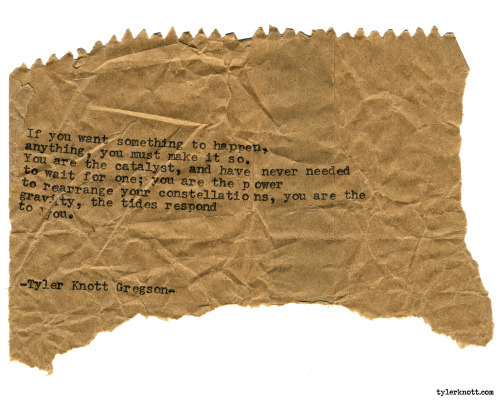 If you want something to happen,
anything, you must make it so.
You are the catalyst, and have never needed
to wait for one; you are the power
to rearrange your constellations, you are the
gravity, the tides respond
to you.
-Tyler Knott Gregson-
tylerknott.com